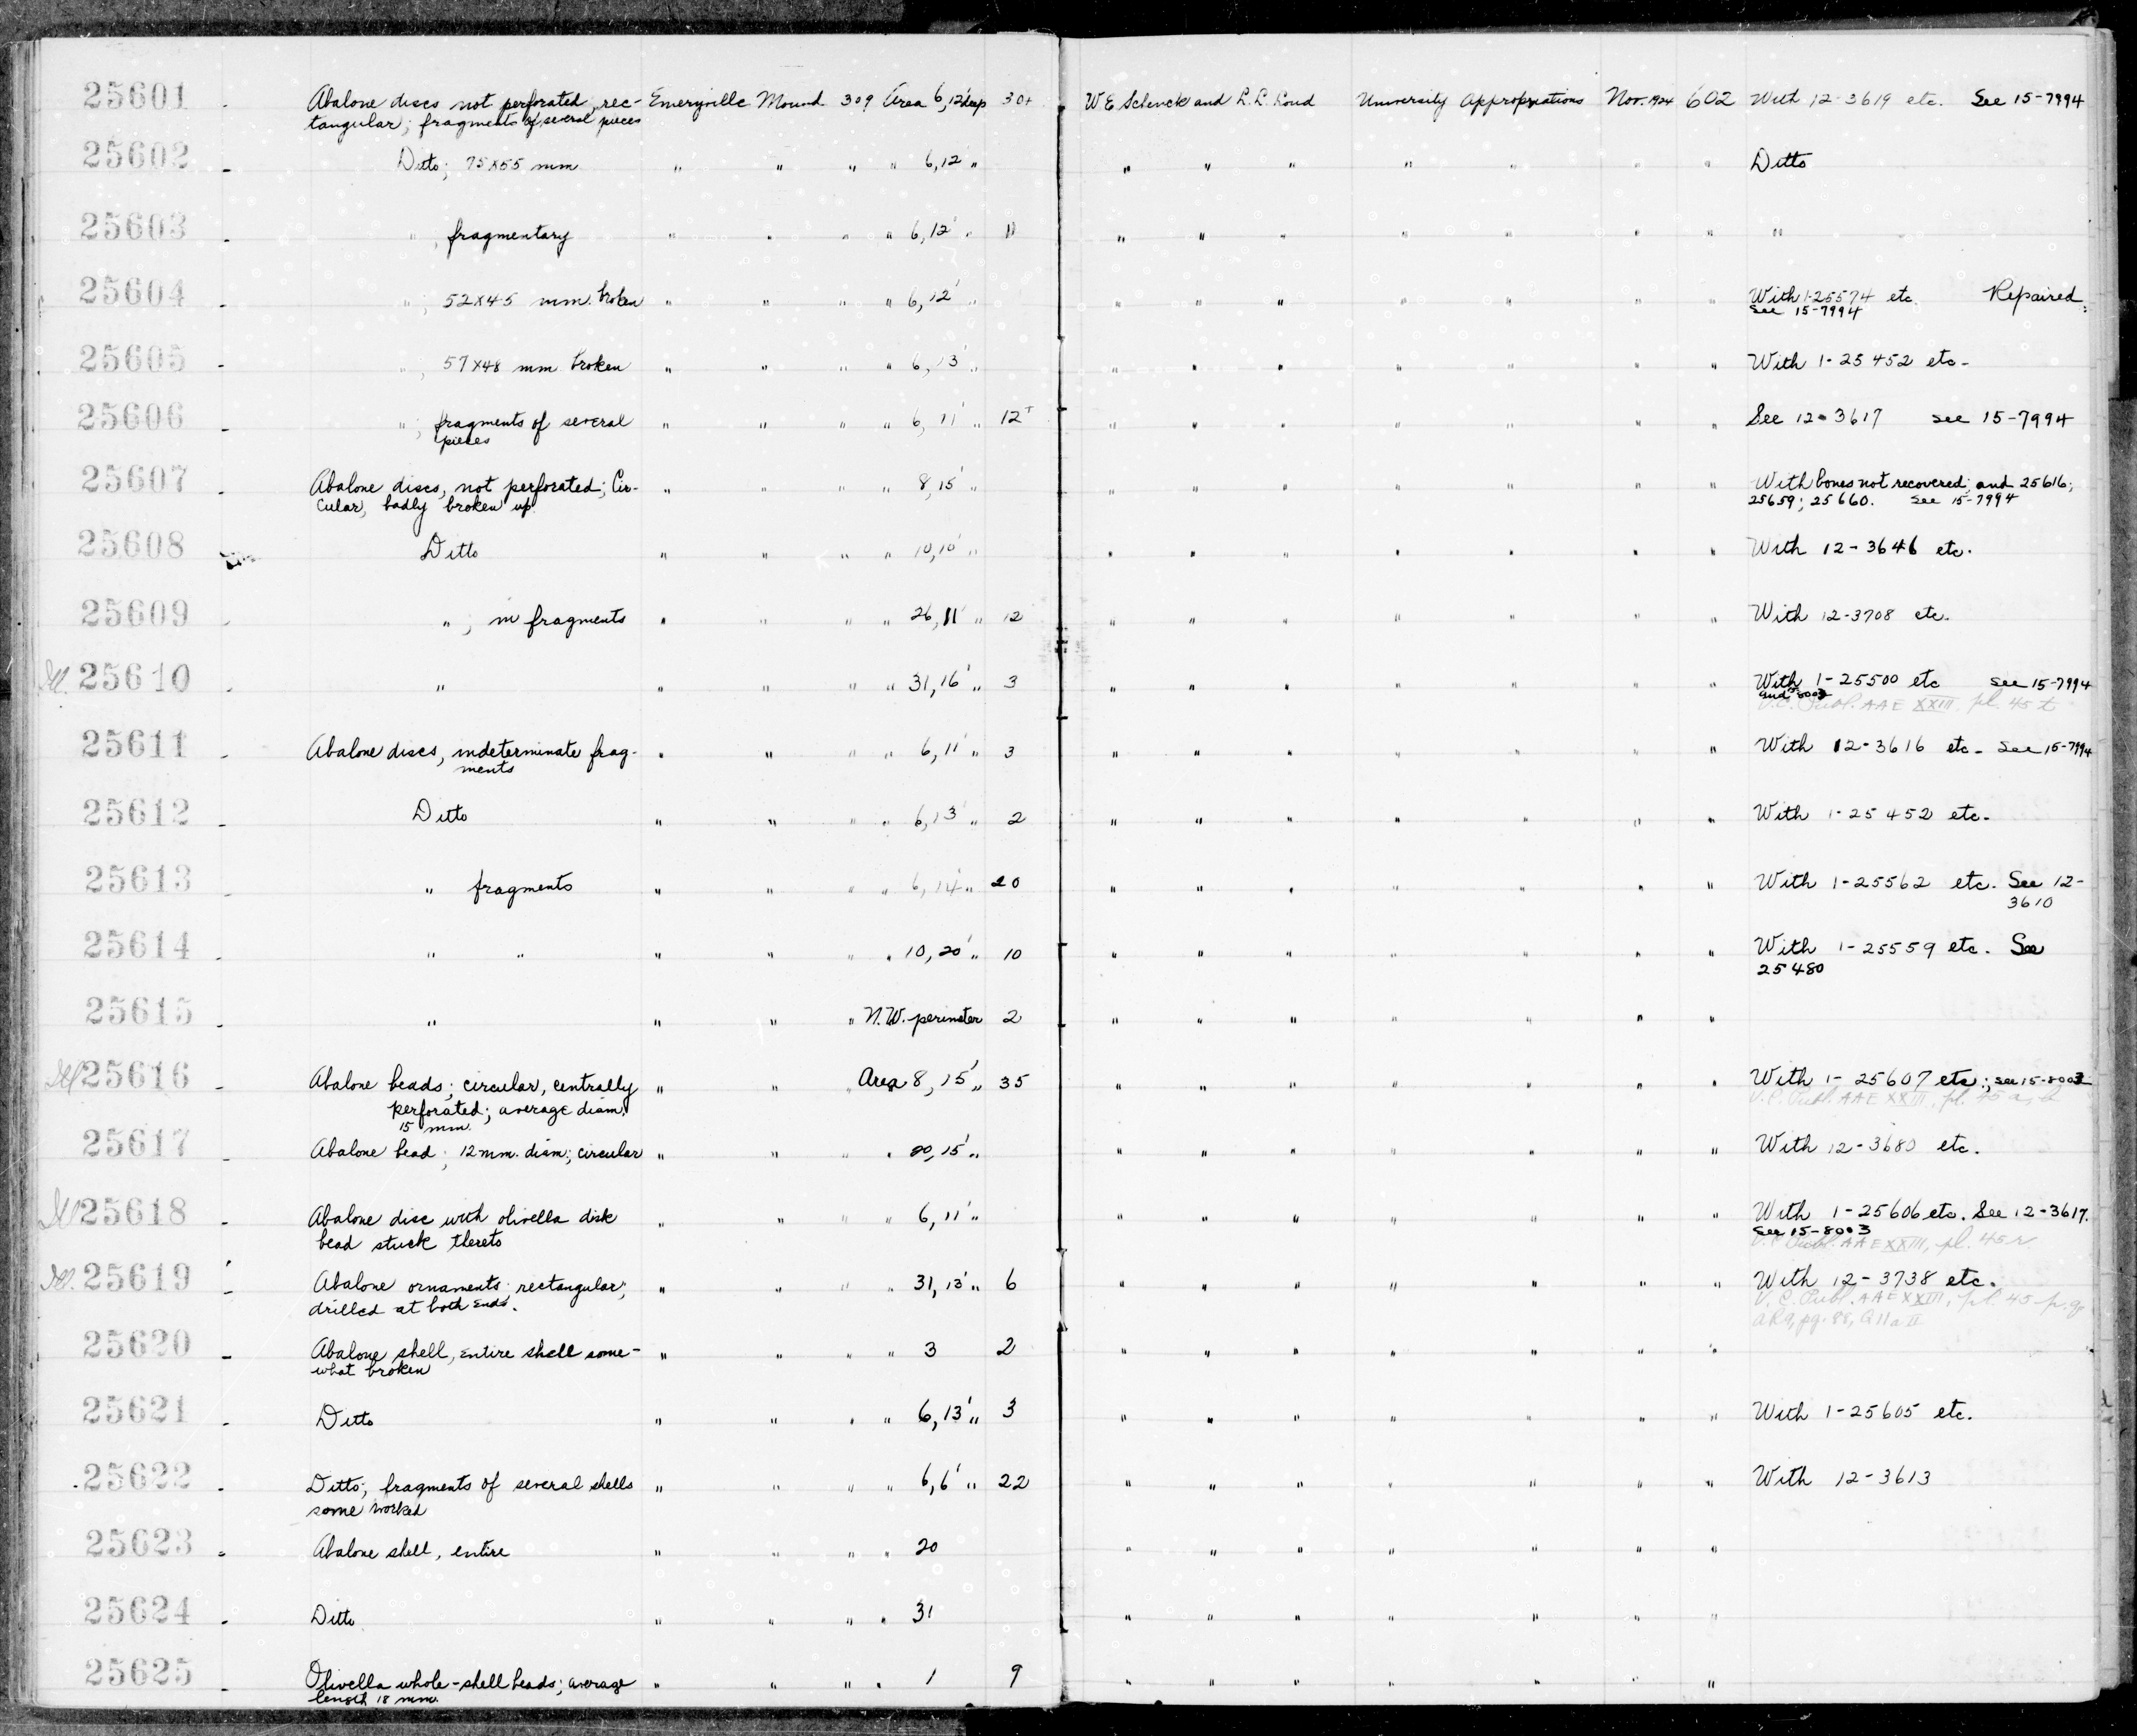 25601 - Abalone discs not perforated, rec- Emeryville Mound 309 Area 6, 12' deep 30+ W E Schenck and L. L. Loud University Appropriations Nov. 1924 602 With 12-3619 etc. See 15-7994
tangular; fragments of several pieces
25602 - Ditto; 75x55 mm " " " " 6, 12' " " " " " " " " Ditto
25603 - " , fragmentary " " " " 6, 12' " 11 " " " " " " " "
25604 - " ; 52x45 mm. broken " " " " 6, 12' " " " " " " " " With 1-25574 etc Repaired
See 15-7994
25605 - " ; 57x48 mm broken " " " " 6, 13' " " " " " " " " With 1-25452 etc-
25606 - " , fragments of several " " " " 6, 11' " 12+ " " " " " " " See 12-3617 see 15-7994
pieces
25607 - Abalone discs, not perforated; Cir- " " " " 8, 15' " " " " " " " " With bones not recovered; and 25616;
cular, badly broken up 25659; 25660. See 15-7994
25608 Ditto " " " " 10, 10' " " " " " " " " With 12-3646 etc.
25609 - " ; in fragments " " " " 26, 11' " 12 " " " " " " " With 12-3708 etc.
Ill. 25610 - " " " " " 31, 16' " 3 " " " " " " " With 1-25500 etc See 15-7994
and 8003
U.C. Publ. AAE XXIII, pl. 45 t
25611 - Abalone discs, indeterminate frag- " " " " 6, 11' " 3 " " " " " " " With 12-3616 etc- See 15-7994
ments
25612 - Ditto " " " " 6, 13' " 2 " " " " " " " With 1-25452 etc-
25613 - " fragments " " " " 6, 14' " 20 " " " " " " " With 1-25562 etc. See 12-
3610
25614 - " " " " " " 10, 20' " 10 " " " " " " " With 1-25559 etc. See
25480
25615 - " " " " N.W. perimeter 2 " " " " " " "
Ill 25616 - Abalone beads; circular, centrally " " " Area 8, 15' " 35 " " " " " " " With 1-25607 etc.; see 15-8003
perforated; average diam. U.C. Publ. AAE XXIII, pl. 45
15 mm.
25617 - Abalone bead; 12 mm. diam; circular " " " " 15' " " " " " " " " With 12-3680 etc.
Ill 25618 - Abalone disc with olivella disk " " " " 6, 11' " " " " " " " " With 1-25606 etc. See 12-3617.
bead stuck thereto See 15-8003
U.C. Publ. AAE XXIII, pl. 45 r
Ill. 25619 - Abalone ornaments; rectangular; " " " " 31, 13' " 6 " " " " " " " With 12-3738 etc.
drilled at both ends. U.C. Publ. AAE XXIII, pl. 45 p.q
pg. 88, Q11a II
25620 - Abalone shell, entire shell some- " " " " 3 2 " " " " " " "
what broken
25621 - Ditto " " " " 6, 13' " 3 " " " " " " " With 1-25605 etc.
25622 - Ditto; fragments of several shells " " " " 6, 6' " 22 " " " " " " " With 12-3613
some worked
25623 - Abalone shell, entire " " " " 20 " " " " " " "
25624 - Ditto " " " " 31 " " " " " " "
25625 - Olivella whole-shell beads; average " " " " 1 9 " " " " " " "
length 18 mm.